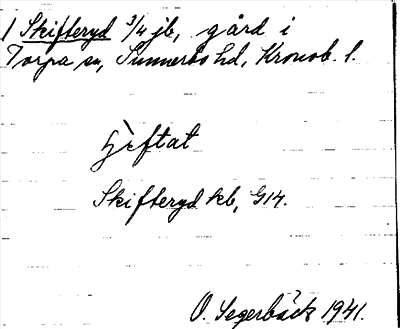 1 Skifteryd 3/4 jb, gård i
Torpa sn, Sunnerbo hd, Kronob. l.
Skifteryd kb, G14.
O. Segerbäck 1941.